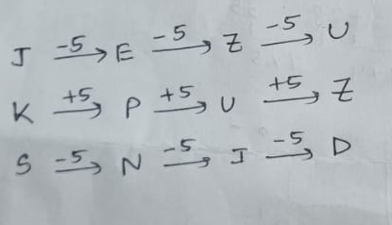 J -5→ E -5→ Z -5→ U
K +5→ P +5→ U +5→ Z
S -5→ N -5→ I -5→ D